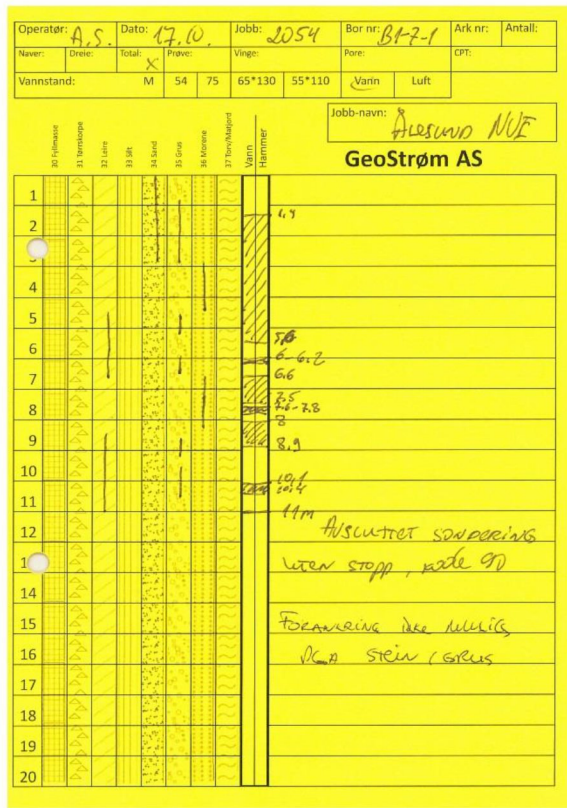 Operatør: A.S. Dato: 17.10. Jobb: 2054 Bor nr: B1-7-1 Ark nr: Antall:
Naver: Dreie: Total: X Prøve: Vinge: Pore: CPT:
Vannstand: M 54 75 65*130 55*110 Vann Luft
Jobb-navn: Ålesund NVE
GeoStrøm AS
30 Fyllmasse 31 Tørrskorpe 32 Leire 33 Silt 34 Sand 35 Grus 36 Morene 37 Torv/Matjord Vann Hammer
1
1,4
2
4
5
5,6
6
6-6,2
6,6
7
7,5
7.6-7.8
8
8
8,9
9
10
10,1
10,4
11
11m
Avsluttet sondering
12
uten stopp, kode 90
14
Forankring ikke mulig
15
PGA stein / grus
16
17
18
19
20